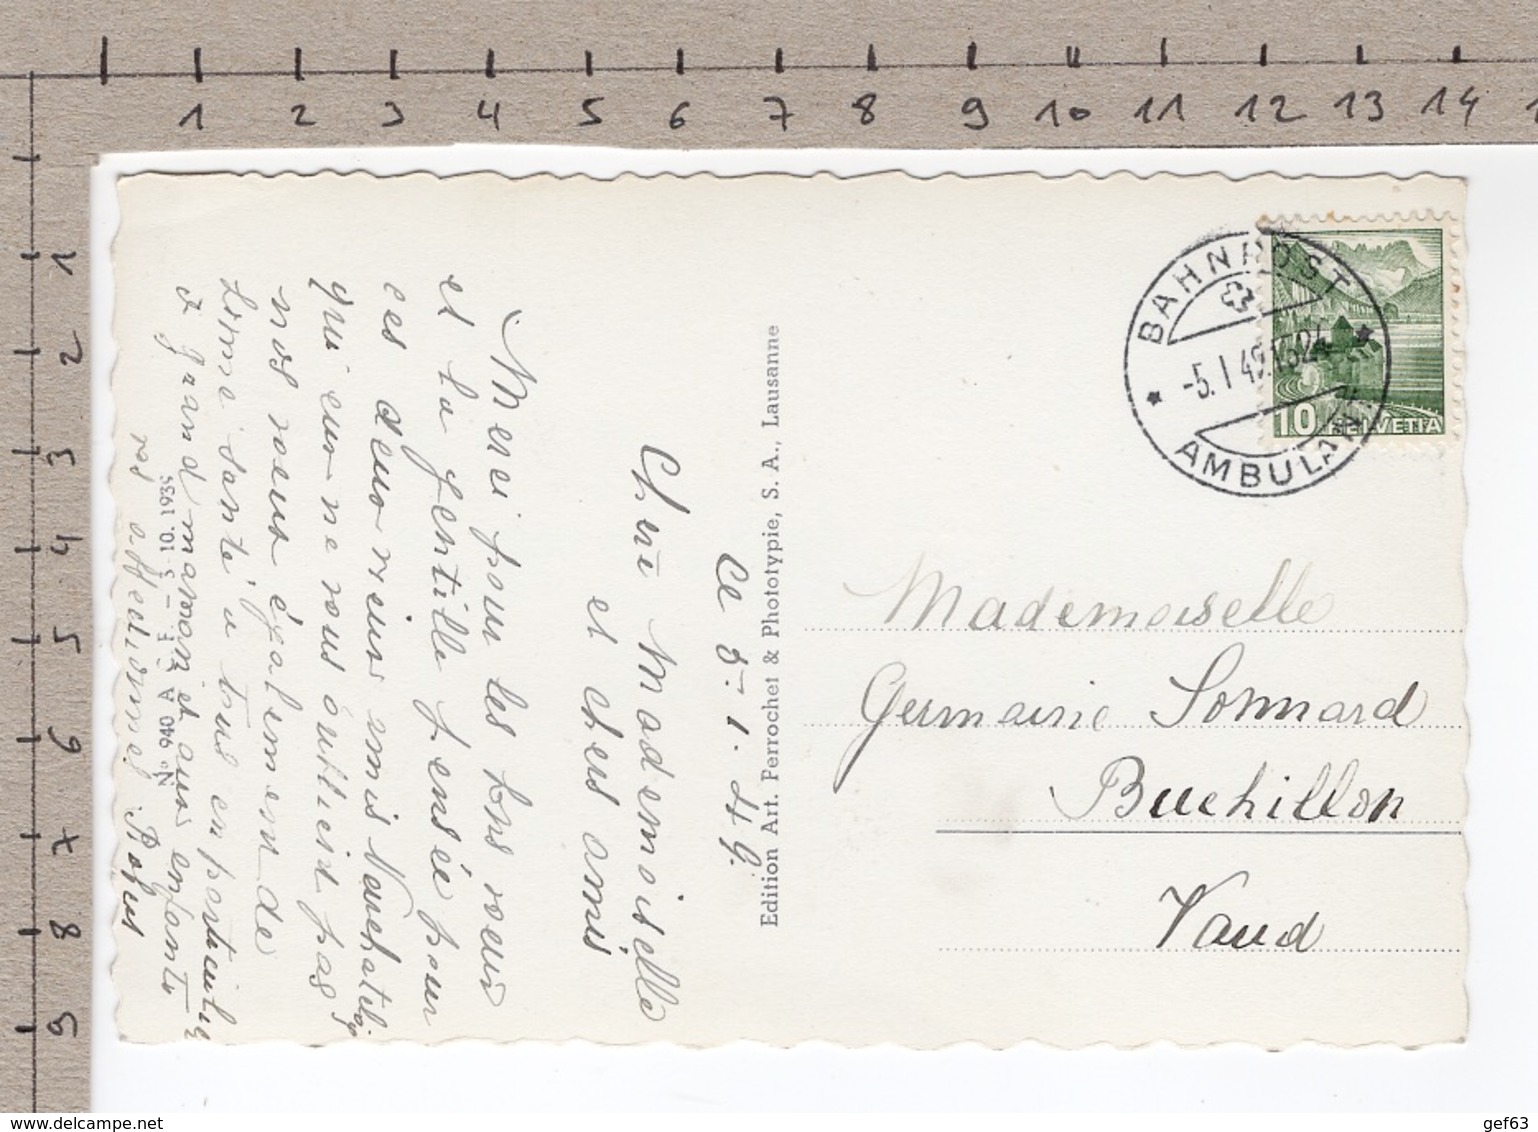 1 2 3 4 5 6 7 8 9 10 11 12 13 14
1
2
3
4
5
6
7
8
9
BAHNPOST
-5.I 49.1524
AMBULANT
10 HELVETIA
Ce 5-1.49.
Chère Mademoiselle
et chers amis
Merci pour les bons voeux
et la gentille pensée pour
ces deux vieux amis Neuchatelois
qui eux ne vous oublient pas
nos voeux également de
bonne santé à tous en particulier
à grand maman et aux enfants
vos affectionnés
Edition Art. Perrochet & Phototypie, S. A., Lausanne
Nº 940 A C F — 3 10. 1939
Mademoiselle
Germaine Sonnard
Buchillon
Vaud
www.delcampe.net
gef63